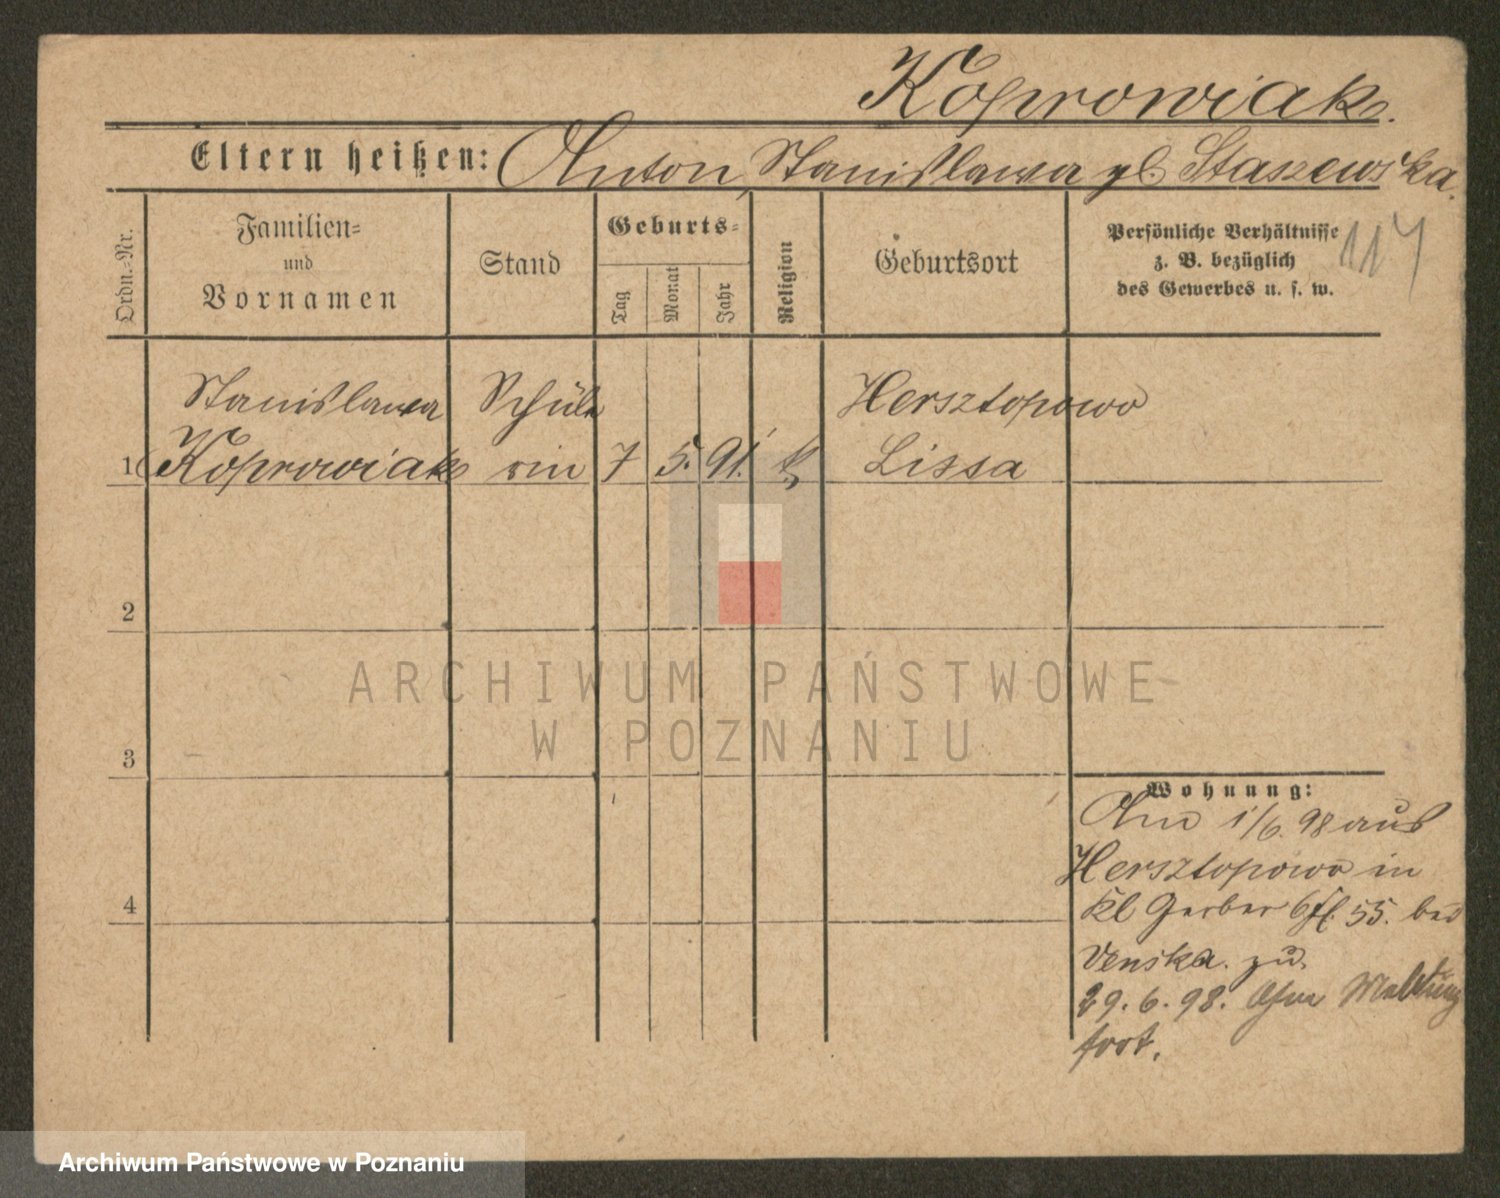 Koprowiak.
Eltern heißen: Anton, Stanislawa gb. Staszewska.
Ordn.=Nr.
Familien=
und
Vornamen
Stand
Geburts=
Tag
Monat
Jahr
Religion
Geburtsort
Persönliche Verhältnisse
z. B. bezüglich
des Gewerbes u. s. w.
117
Stanislawa Schüle Hersztopowo
1 Koprowiak rin 7 5. 91. k. Lissa
2
ARCHIWUM PAŃSTWOWE
W POZNANIU
3
Wohnung:
Am 1/6. 98 aus
Hersztopowo in
Kl Gerber 55. bei
Venska. zu.
29.6.98. Ohne Meldung
fort.
4
Archiwum Państwowe w Poznaniu